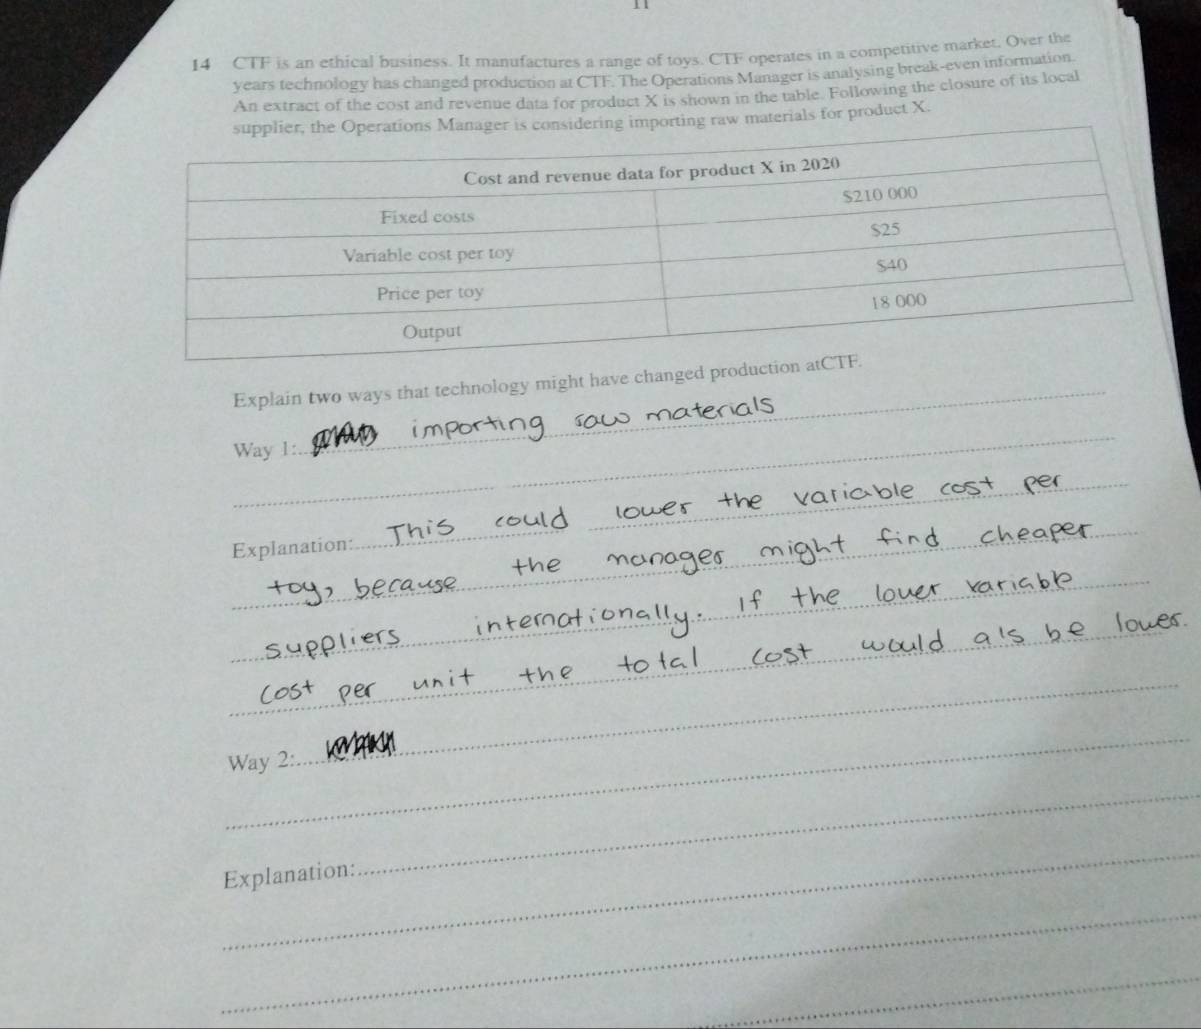 11
14 CTF is an ethical business. It manufactures a range of toys. CTF operates in a competitive market. Over the
years technology has changed production at CTF. The Operations Manager is analysing break-even information.
An extract of the cost and revenue data for product X is shown in the table. Following the closure of its local
supplier, the Operations Manager is considering importing raw materials for product X.
Cost and revenue data for product X in 2020
Fixed costs $210 000
Variable cost per toy $25
Price per toy $40
Output 18 000
Explain two ways that technology might have changed production atCTF.
Way 1: importing raw materials
Explanation: This could lower the variable cost per
toy, because the manager might find cheaper
suppliers internationally. If the lower variable
cost per unit the total cost would als be lower.
Way 2:
Explanation: